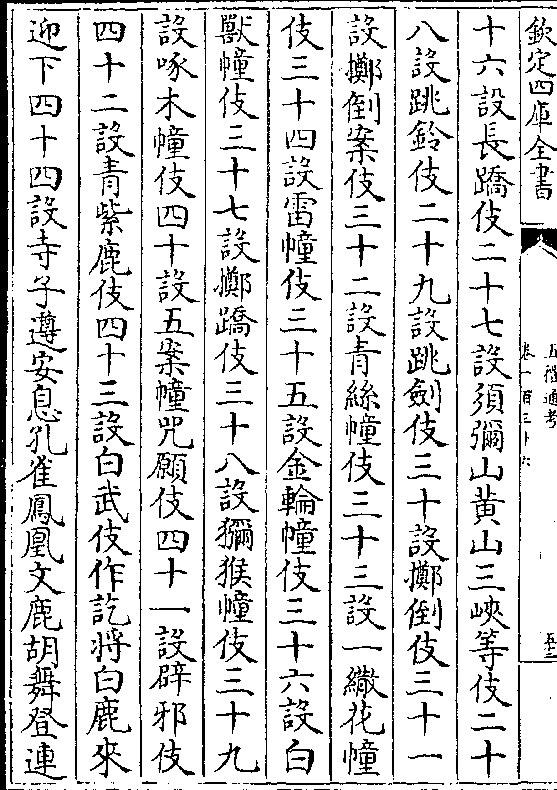 欽定四庫全書
五禮通考
卷一百三十六
五三
十六設長蹻伎二十七設須彌山黄山三峽等伎二十
八設跳鈴伎二十九設跳劍伎三十設擲倒伎三十一
設擲倒案伎三十二設青絲幢伎三十三設一繖花幢
伎三十四設雷幢伎三十五設金輪幢伎三十六設白
獸幢伎三十七設擲蹻伎三十八設獮猴幢伎三十九
設啄木幢伎四十設五案幢咒願伎四十一設辟邪伎
四十二設青紫鹿伎四十三設白武伎作訖將白鹿來
迎下四十四設寺子遵安息孔雀鳳凰文鹿胡舞登連